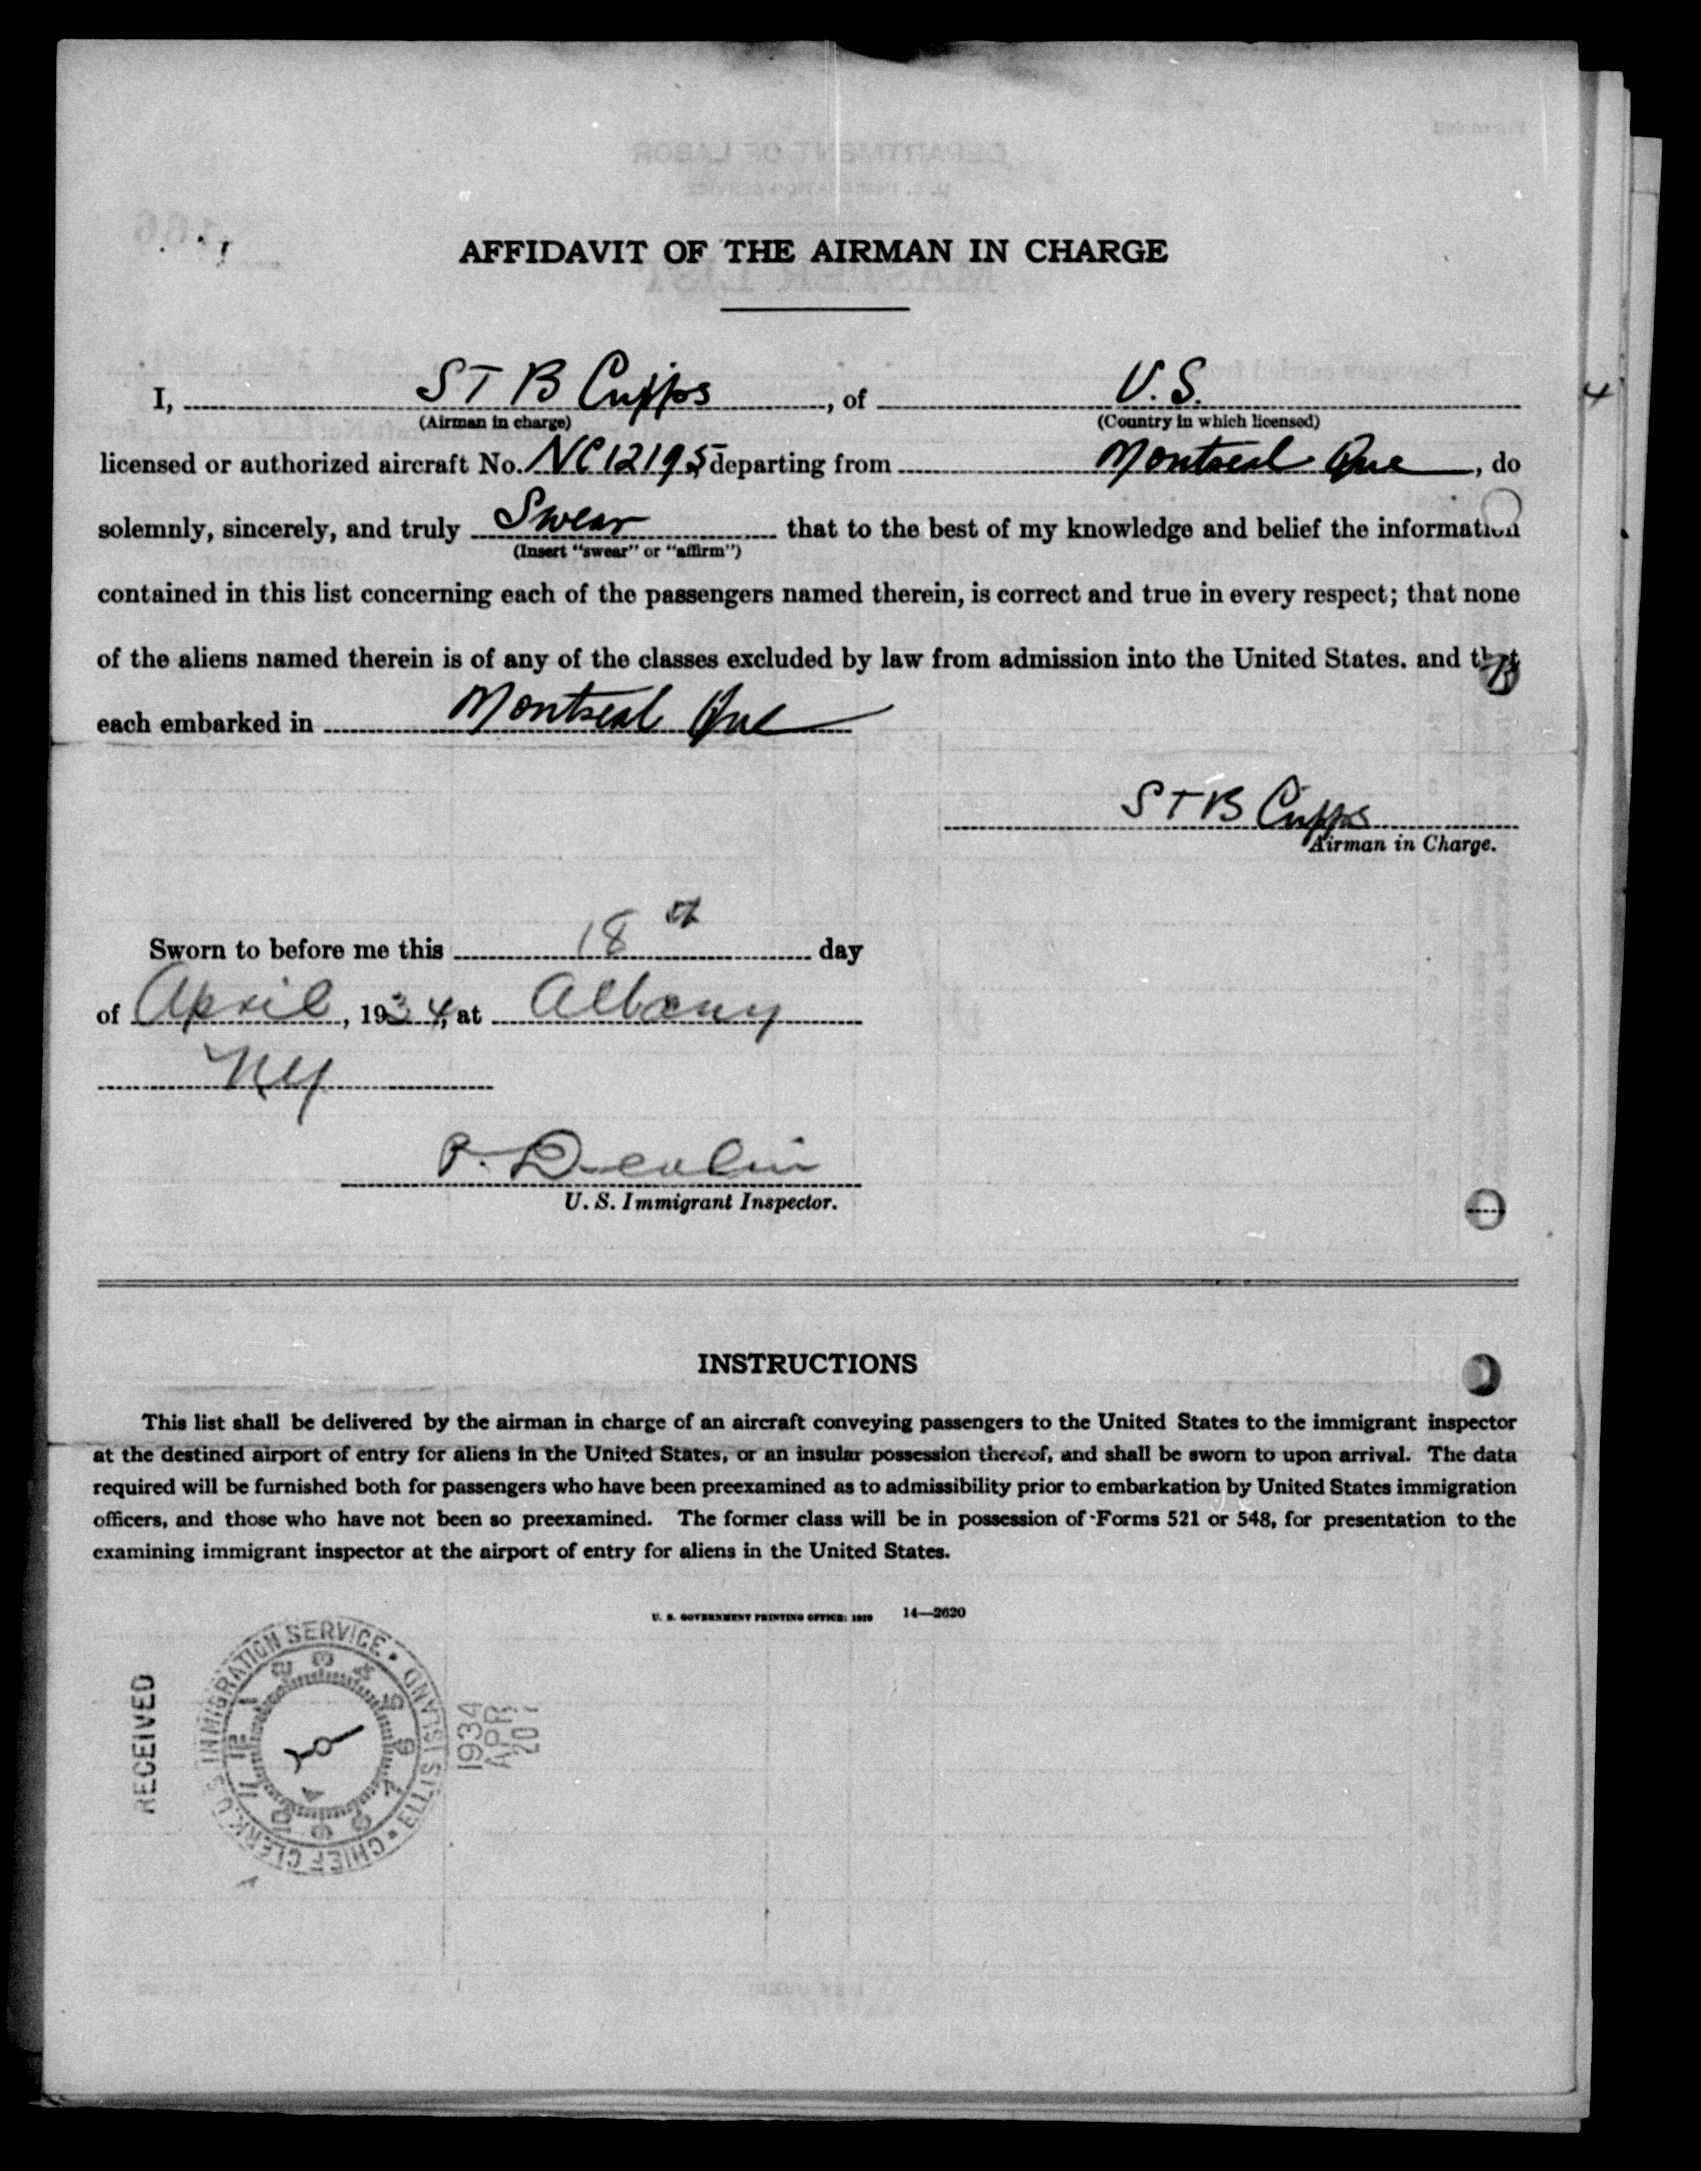 AFFIDAVIT OF THE AIRMAN IN CHARGE
I, S T B Cupps, of U.S.
(Airman in charge) (Country in which licensed)
licensed or authorized aircraft No. NC12195, departing from Montreal Que, do
solemnly, sincerely, and truly Swear that to the best of my knowledge and belief the information
(Insert "swear" or "affirm")
contained in this list concerning each of the passengers named therein, is correct and true in every respect; that none
of the aliens named therein is of any of the classes excluded by law from admission into the United States. and that
each embarked in Montreal Que
S T B Cupps
Airman in Charge.
Sworn to before me this 18th day
of April, 1934, at Albany
NY
P. Devlin
U. S. Immigrant Inspector.
INSTRUCTIONS
This list shall be delivered by the airman in charge of an aircraft conveying passengers to the United States to the immigrant inspector
at the destined airport of entry for aliens in the United States, or an insular possession thereof, and shall be sworn to upon arrival. The data
required will be furnished both for passengers who have been preexamined as to admissibility prior to embarkation by United States immigration
officers, and those who have not been so preexamined. The former class will be in possession of Forms 521 or 548, for presentation to the
examining immigrant inspector at the airport of entry for aliens in the United States.
U. S. GOVERNMENT PRINTING OFFICE: 1929 14—2620
RECEIVED
CHIEF CLERK U S IMMIGRATION SERVICE • ELLIS ISLAND •
12 1 2 3 4 5 6 7 8 9 10 11
1934
APR
20
4